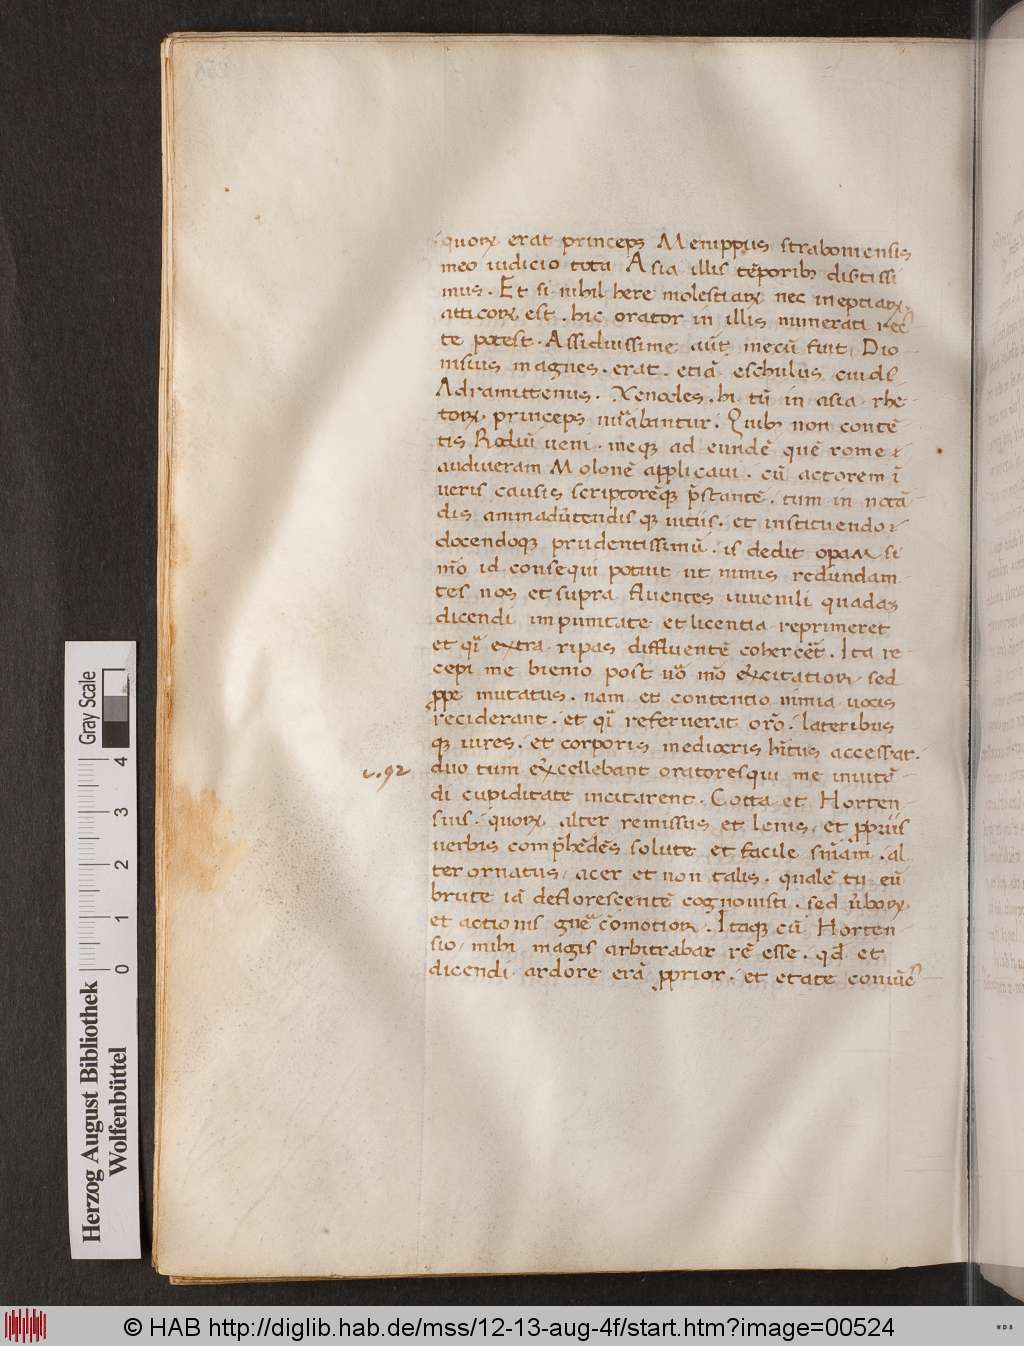 quorꝝ erat princeps Menippus straboniensis
meo iudicio tota Asia illis tēporibꝫ disertissi
mus. Et si nihil here molestiarꝝ nec ineptiarꝝ
atticorꝝ est. hic orator in illis numerari rec
te potest. Assiduissime aūt mecū fuit Dio
nisius magnes. erat. etiā eschulus cnidꝰ
Adramittenus. Xenocles. hi tū in asia rhe
torꝝ princeps nūabantur. Quibꝫ non contē
tis Rodiū veni. meqꝫ ad eundē quē rome
audiveram Molonē applicavi. cū actorem ī
veris causis scriptorēqꝫ p̄stantē. tum in notā
dis animadūtendisqꝫ vitiis. et instituendo
docendoqꝫ prudentissimū. is dedit operam si
mō id consequi potuit ut nimis redundan
tes nos et supra fluentes iuvenili quadaꝫ
dicendi impunitate et licentia reprimeret
et qͣi extra ripas diffluentē cohercēt. Ita re
cepi me biēnio post nō mō exͨitatior sed
ꝓpe mutatus. nam et contentio nimia vocis
reciderant. et qͣi referuerat orō. lateribus
qꝫ vires. et corporis mediocris hītus accesserat.
v. 92
duo tum exͨellebant oratores qui me imitā
di cupiditate incitarent. Cotta et Horten
sius. quorꝝ alter remissus et lenis, et ꝓpriis
verbis comp̄hēdēs solute et facile sn̄iam. al
ter ornatus, acer et non talis. qualē tu eū
brute iā deflorescentē cognovisti. sed ūborꝝ
et actionis gn̄e cōmotior. Itaqꝫ cū Horten
sio, mihi magis arbitrabar rē esse. qd̄ et
dicendi ardore erā ꝓprior. et etate coniūc
Herzog August Bibliothek
Wolfenbüttel
Gray Scale
4
3
2
1
0
© HAB http://diglib.hab.de/mss/12-13-aug-4f/start.htm?image=00524